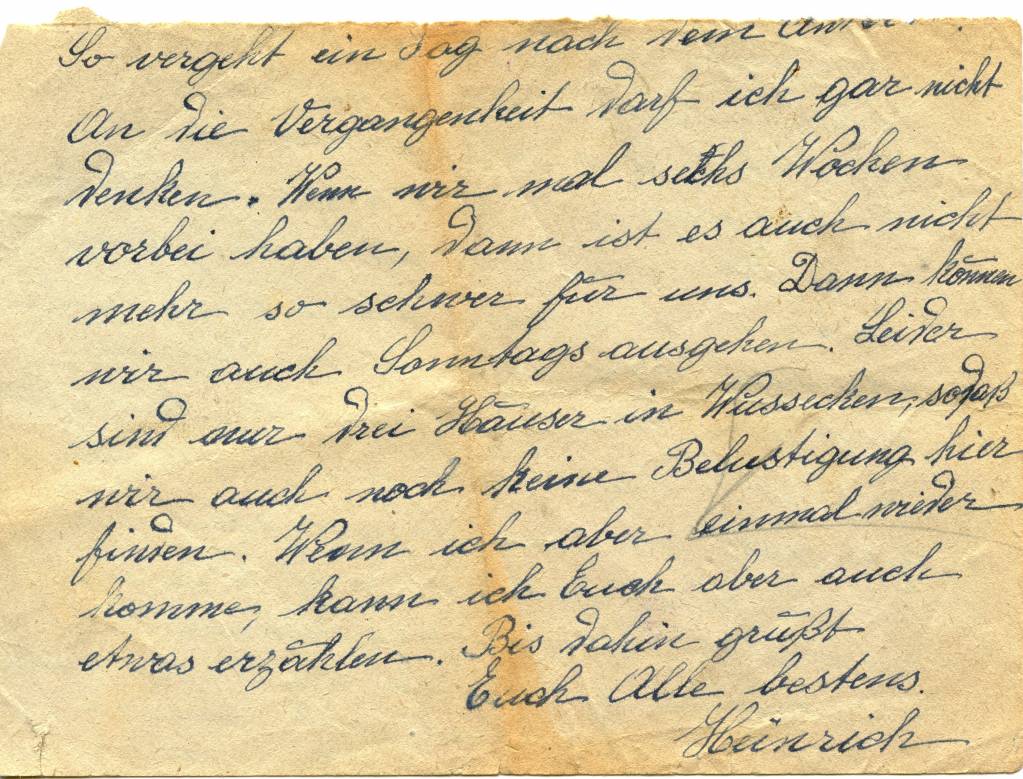 So vergeht ein Tag nach dem
An die Vergangenheit darf ich gar nicht
denken. Wenn wir mal sechs Wochen
vorbei haben, dann ist es auch nicht
mehr so schwer für uns. Dann können
wir auch Sonntags ausgehen. Leider
sind nur drei Häuser in Wussecken, sodaß
wir auch noch keine Belustigung hier
finden. Wenn ich aber einmal wieder
komme, kann ich Euch aber auch
etwas erzählen. Bis dahin grüßt
Euch Alle bestens.
Heinrich